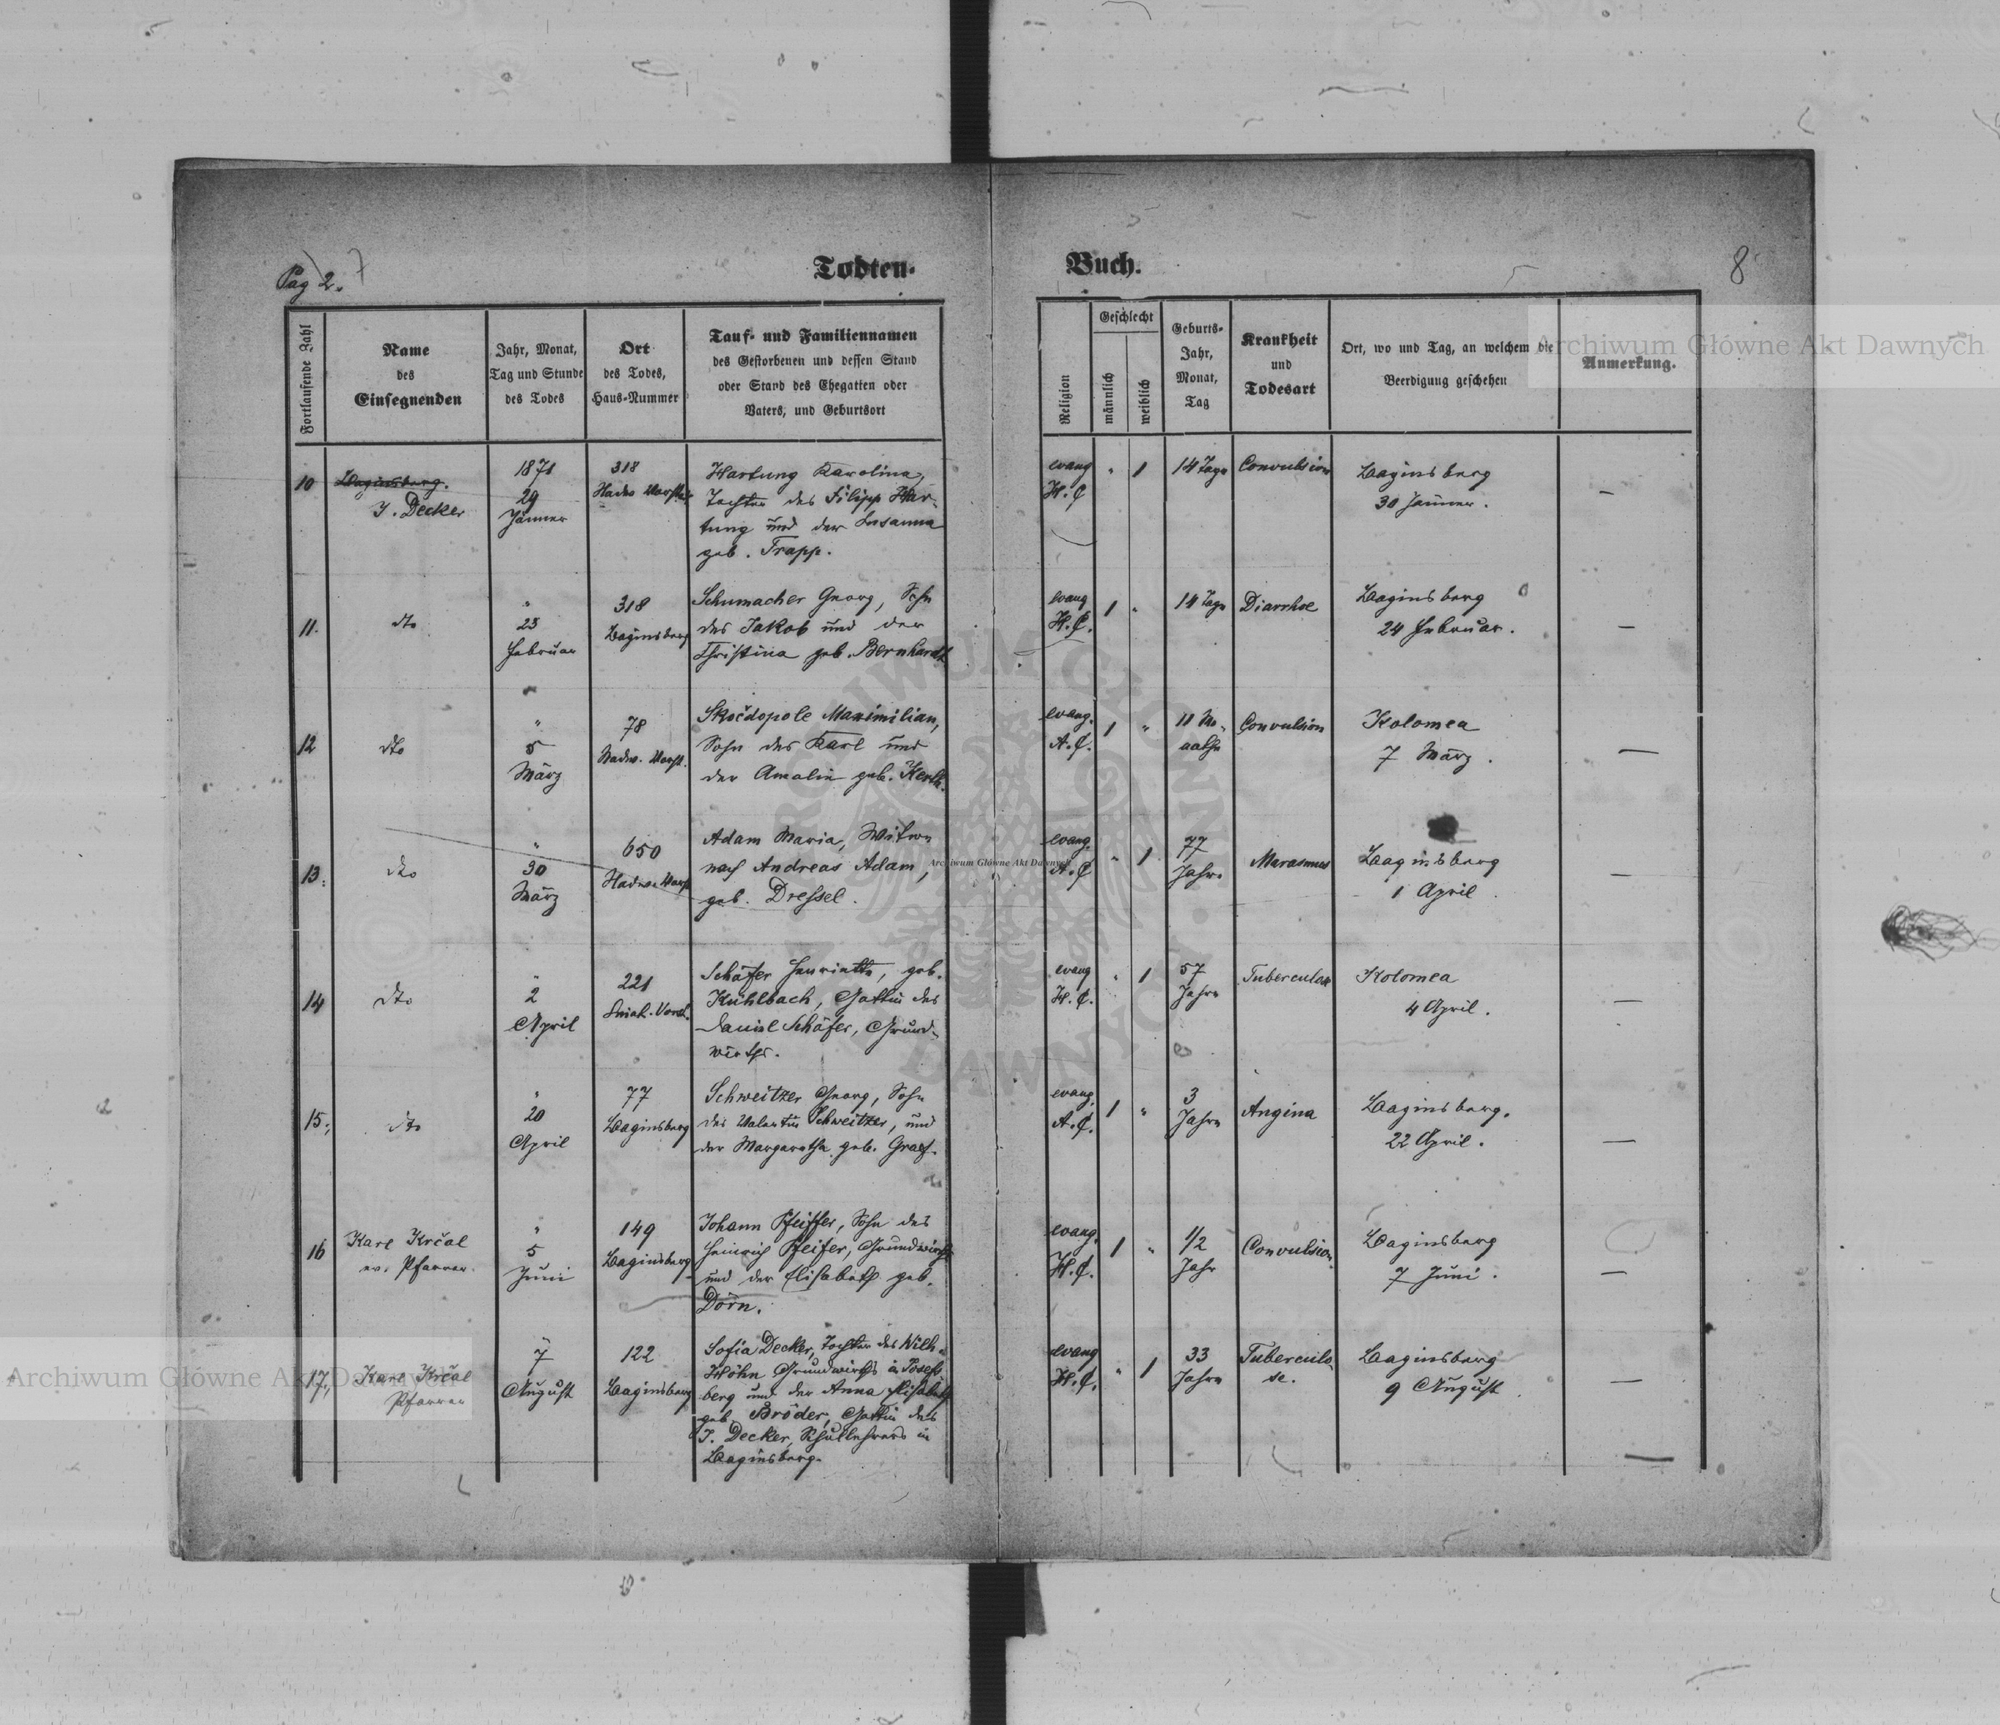 Pag 2. 7
Todten-
Buch.
8
Fortlaufende Zahl
Name
des
Einsegnenden
Jahr, Monat,
Tag und Stunde
des Todes
Ort
des Todes,
Haus-Nummer
Tauf- und Familiennamen
des Gestorbenen und dessen Stand
oder Stand des Ehegatten oder
Vaters, und Geburtsort
Religion
Geschlecht
männlich
weiblich
Geburts-
Jahr,
Monat,
Tag
Krankheit
und
Todesart
Ort, wo und Tag, an welchem die
Beerdigung geschehen
Anmerkung.
10
Baginsberg.
J. Decker
1871
29
Jänner
318
Hartung Karolina,
Tochter des Filipp Har-
tung und der Susanna
geb. Trapp.
evang
H.C
" 1
14 Tage
Convulsion
Baginsberg
30 Jänner.
—
11.
dto
"
23
Februar
318
Baginsberg
Schumacher Georg, Sohn
des Jakob und der
Christina geb. Bernhardt
evang
H.C.
1 "
14 Tage
Diarrhoe
Baginsberg
24 Februar.
—
12
dto
"
5
März
78
Nadw. Vorst.
Skočdopole Maximilian,
Sohn des Karl und
der Amalie geb. Kerth.
evang.
A.C.
1 "
11 Mo-
nathe
Convulsion
Kolomea
7 März.
—
13.
dto
"
30
März
650
Nadw. Vorst
Adam Maria, Witwe
nach Andreas Adam,
geb. Dressel.
evang.
A.C
" 1
77
Jahre
Marasmus
Baginsberg
1 April.
—
14
dto
"
2
April
221
Sniat. Vorst.
Schäfer Henriette, geb.
Kühlbach, Gattin des
Daniel Schäfer, Grund-
wirths.
evang
H.C.
" 1
57
Jahre
Tuberculose
Kolomea
4 April.
—
15.
dto
"
20
April
77
Baginsberg
Schweitzer Georg, Sohn
des Valentin Schweitzer, und
der Margaretha geb. Graef.
evang.
A.C.
1 "
3
Jahre
Angina
Baginsberg.
22 April.
—
16
Karl Krčal
ev. Pfarrer.
"
5
Juni
149
Baginsberg
Johann Pfeiffer, Sohn des
Heinrich Pfeifer, Grundwirths
und der Elisabeth geb.
Dörn.
evang.
H.C.
1 "
1/2
Jahr
Convulsion.
Baginsberg
7 Juni.
—
17.
Karl Krčal
Pfarrer
7
August
122
Baginsberg
Sofia Decker, Tochter des Wilh.
Höhn Grundwirths in Josefs-
berg und der Anna Elisabeth
geb. Bröder, Gattin des
J. Decker, Schullehrers in
Baginsberg.
evang
H.C.
" 1
33
Jahre
Tuberculo-
se.
Baginsberg
9 August.
—
Archiwum Główne Akt Dawnych
Archiwum Główne Akt Dawnych
Archiwum Główne Akt Dawnych
ARCHIWUM GŁÓWNE AKT DAWNYCH